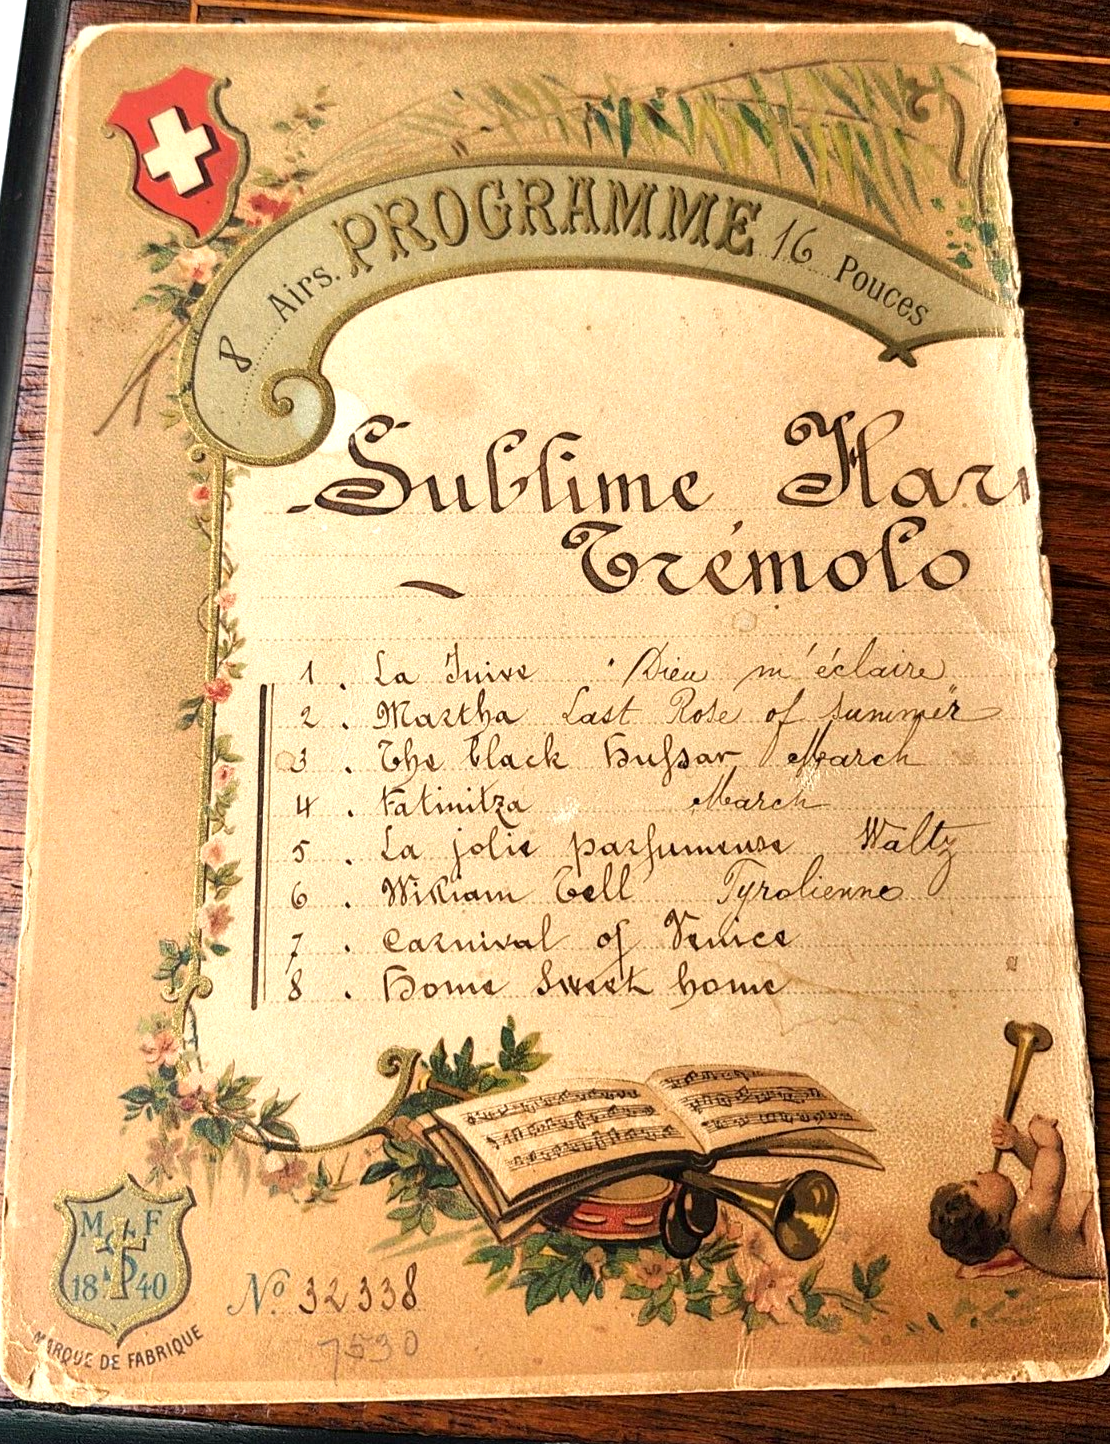 PROGRAMME
8 Airs. 16 Pouces
Sublime Har
Trémolo
1 . La Juive "Dieu m'éclaire
2 . Martha Last Rose of Summer"
3 . The black Hussar March
4 . Fatinitza March
5 . La jolie parfumeuse Waltz
6 . William Tell Tyrolienne
7 . Carnival of Venice
8 . Home Sweet home
M F
18 40
MARQUE DE FABRIQUE
No 32338
7530